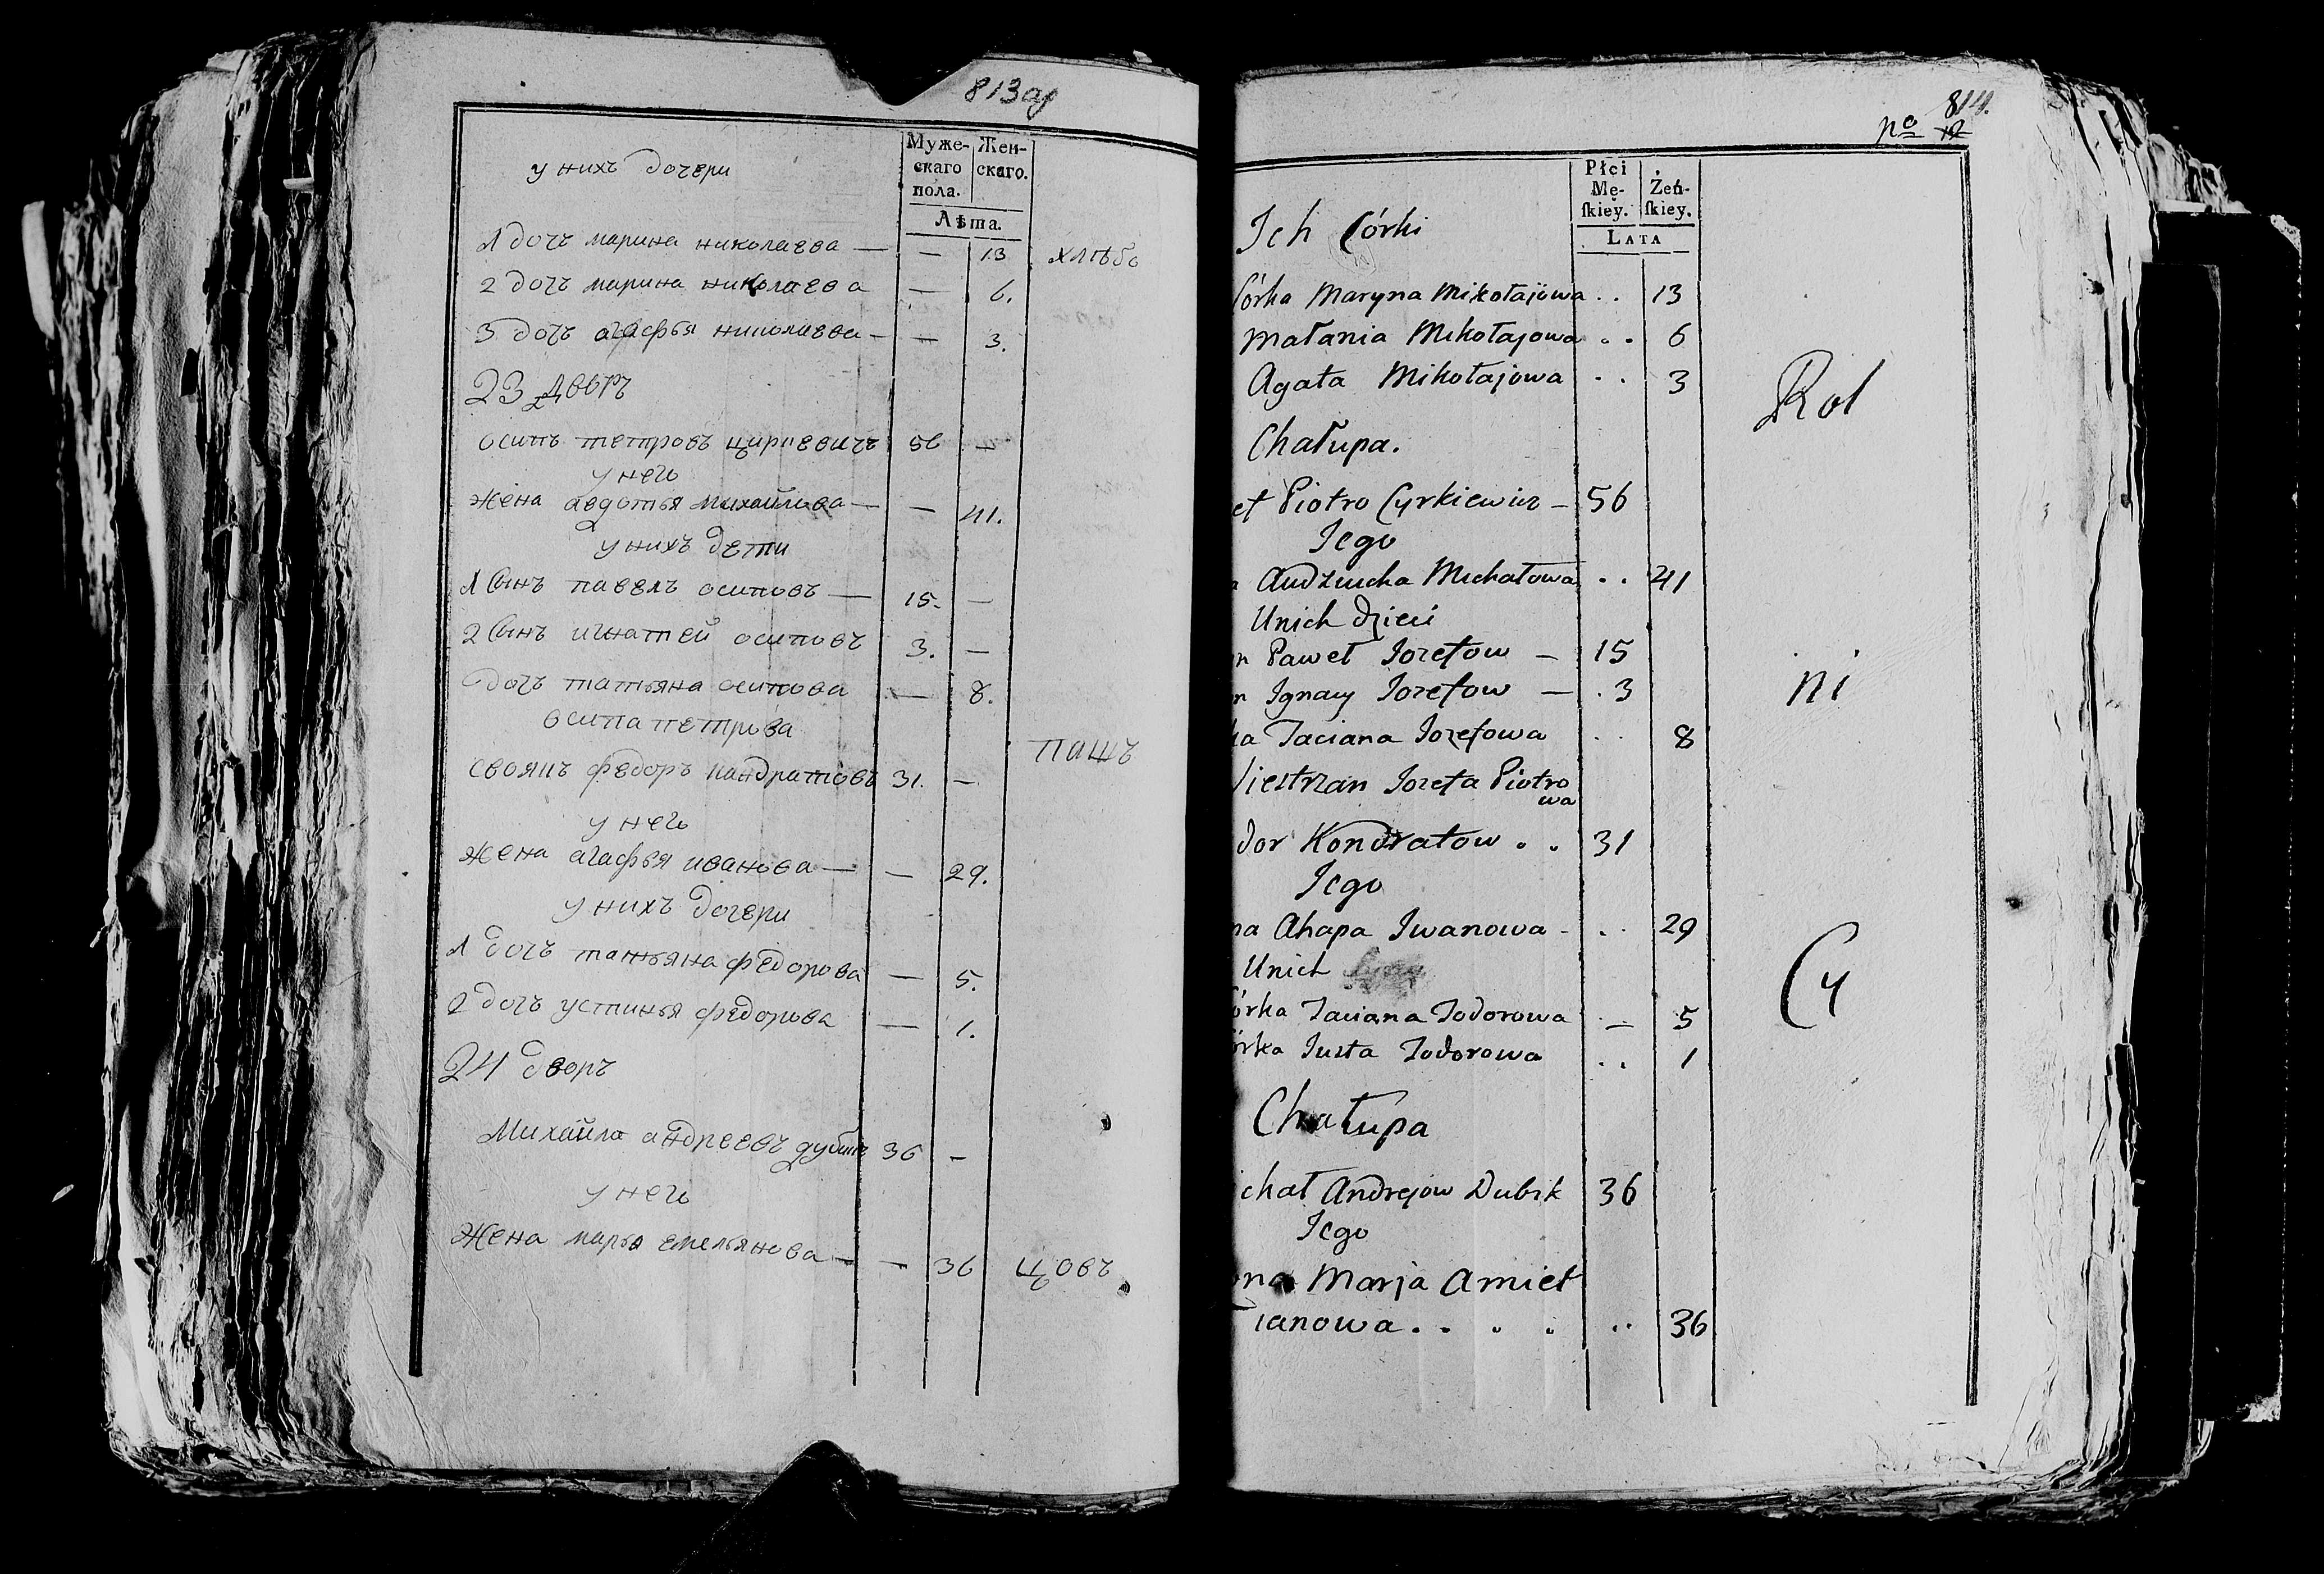 813 об
Муже-
скаго
пола.
Жен-
скаго.
Лѣта.
у нихъ дочери
1 дочь марина николаева — — 13
хлѣбо
2 дочь марина николаева — 6.
3 дочь агафья николаева — — 3.
23 дворъ
осипъ петровъ циркевичъ 56 —
у него
жена авдотья михайлова — — 41.
у нихъ дети
1 сынъ павелъ осиповъ — 15. —
2 сынъ игнатей осиповъ 3. —
дочь татьяна осипова — 8.
осипа петрова
пашъ
своякъ федоръ кандратовъ 31. —
у него
жена агафья иванова — — 29.
у нихъ дочери
1 дочь татьяна федорова — 5.
2 дочь устинья федорова — 1.
24 дворъ
Михайла андреевъ 36 —
у него
жена марья емельянова — — 36
цовъ
814.
no 12
Płci
Mę-
skiey.
Żeń-
skiey.
LATA
Ich Córki
Córka Maryna Mikołajowa . . 13
Małania Mikołajowa . . 6
Agata Mikołajowa . . 3
Rol
Chałupa.
et Piotro Cyrkiewicz – 56
Jego
Audziucha Michałowa . . 41
Unich dzieci
n Paweł Jozefow – 15
n Ignacy Jozefow — . 3
ni
ka Taciana Jozefowa . . 8
Siestrzan Jozefa Piotro
wa
dor Kondratow . . 31
Jego
na Ahapa Iwanowa - . . 29
Unich
Cy
órka Taciana Todorowa — 5
órka Justa Todorowa . . 1
Chałupa
ichał Andrejow Dubik 36
Jego
ona Marja Amieł
ianowa . . . . . . 36